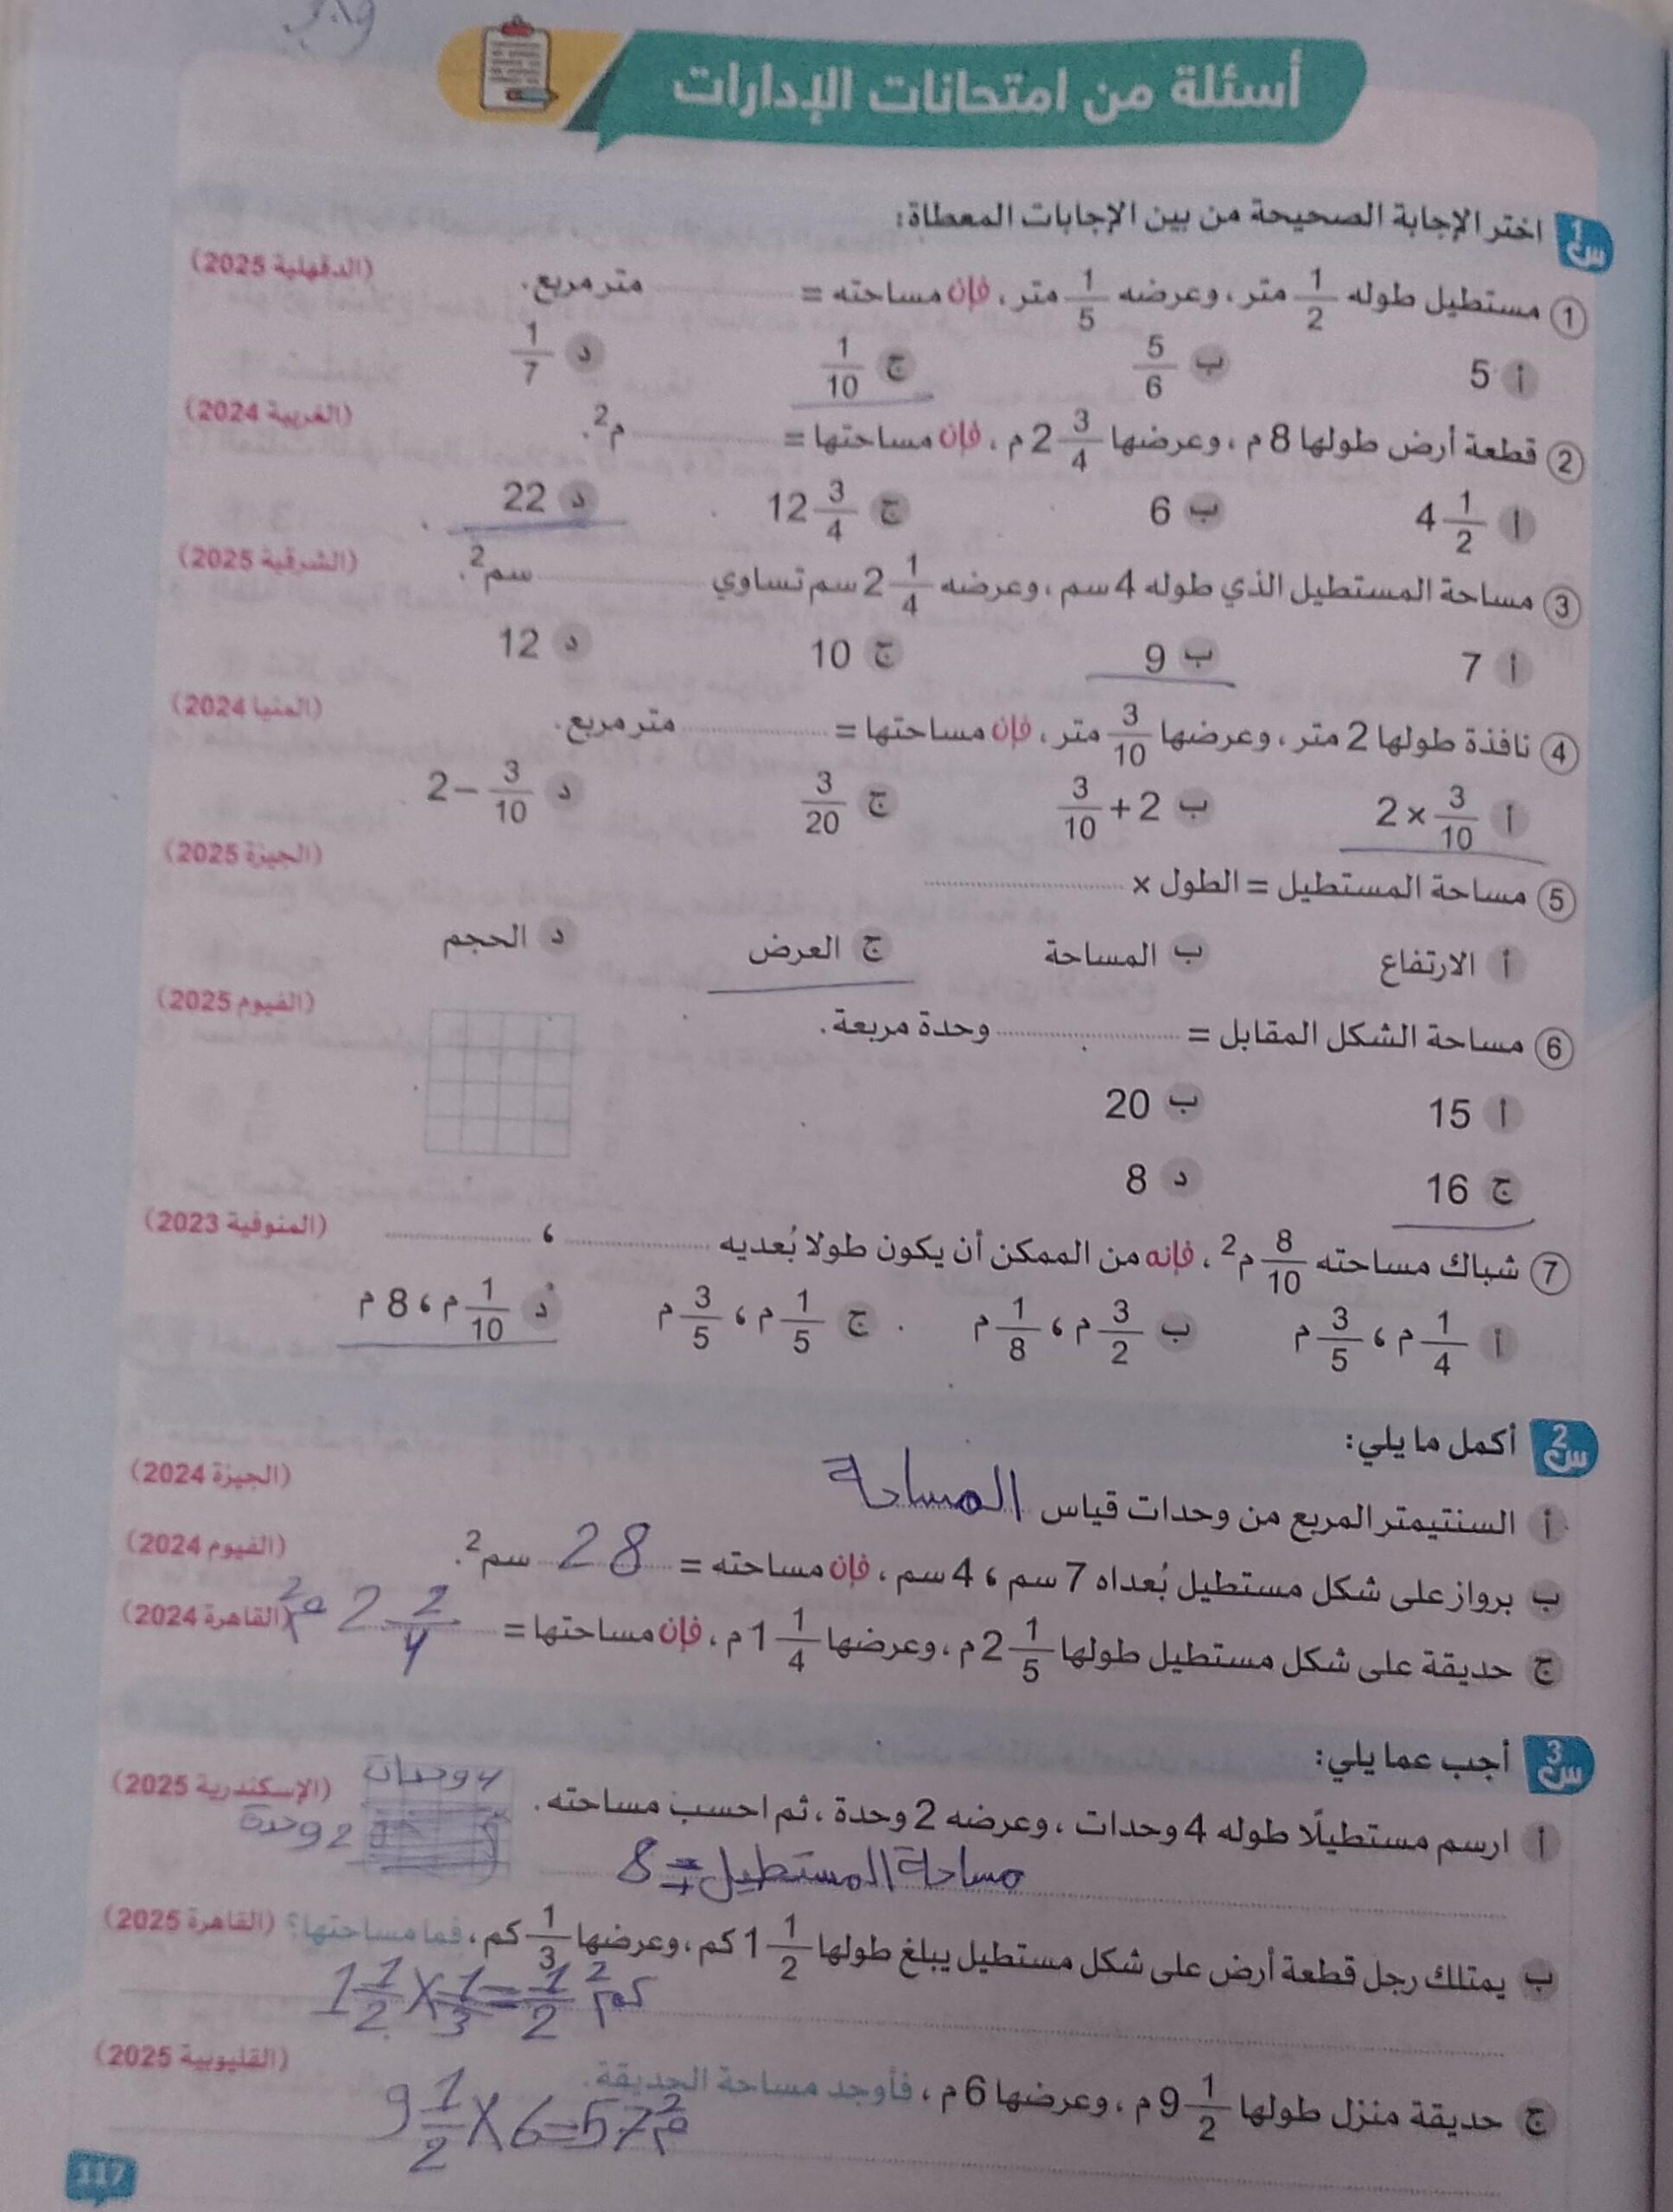 أسئلة من امتحانات الإدارات
س1 اختر الإجابة الصحيحة من بين الإجابات المعطاة:
1 مستطيل طوله 1/2 متر، وعرضه 1/5 متر، فإن مساحته = .......... متر مربع. (الدقهلية 2025)
أ 5 ب 5/6 ج 1/10 د 1/7
2 قطعة أرض طولها 8 م، وعرضها 2 3/4 م، فإن مساحتها = .......... م². (الغربية 2024)
أ 4 1/2 ب 6 ج 12 3/4 د 22
3 مساحة المستطيل الذي طوله 4 سم، وعرضه 2 1/4 سم تساوي .......... سم². (الشرقية 2025)
أ 7 ب 9 ج 10 د 12
4 نافذة طولها 2 متر، وعرضها 3/10 متر، فإن مساحتها = .......... متر مربع. (المنيا 2024)
أ 2 × 3/10 ب 3/10 + 2 ج 3/20 د 2 − 3/10
5 مساحة المستطيل = الطول × .......... (الجيزة 2025)
أ الارتفاع ب المساحة ج العرض د الحجم
6 مساحة الشكل المقابل = .......... وحدة مربعة. (الفيوم 2025)
أ 15 ب 20
ج 16 د 8
7 شباك مساحته 8/10 م²، فإنه من الممكن أن يكون طولا بُعديه .......... ، .......... (المنوفية 2023)
أ 1/4 م ، 3/5 م ب 3/2 م ، 1/8 م ج 1/5 م ، 3/5 م د 1/10 م ، 8 م
س2 أكمل ما يلي:
أ السنتيمتر المربع من وحدات قياس المساحة (الجيزة 2024)
ب برواز على شكل مستطيل بُعداه 7 سم ، 4 سم، فإن مساحته = 28 سم². (الفيوم 2024)
ج حديقة على شكل مستطيل طولها 2 1/5 م، وعرضها 1 1/4 م، فإن مساحتها = 2 2/4 م² (القاهرة 2024)
س3 أجب عما يلي:
أ ارسم مستطيلًا طوله 4 وحدات، وعرضه 2 وحدة، ثم احسب مساحته. (الإسكندرية 2025)
4 وحدات
2 وحدة
مساحة المستطيل = 8
ب يمتلك رجل قطعة أرض على شكل مستطيل يبلغ طولها 1 1/2 كم، وعرضها 1/3 كم، فما مساحتها؟ (القاهرة 2025)
1 1/2 × 1/3 = 1/2 كم²
ج حديقة منزل طولها 9 1/2 م، وعرضها 6 م، فأوجد مساحة الحديقة. (القليوبية 2025)
9 1/2 × 6 = 57 م²
117